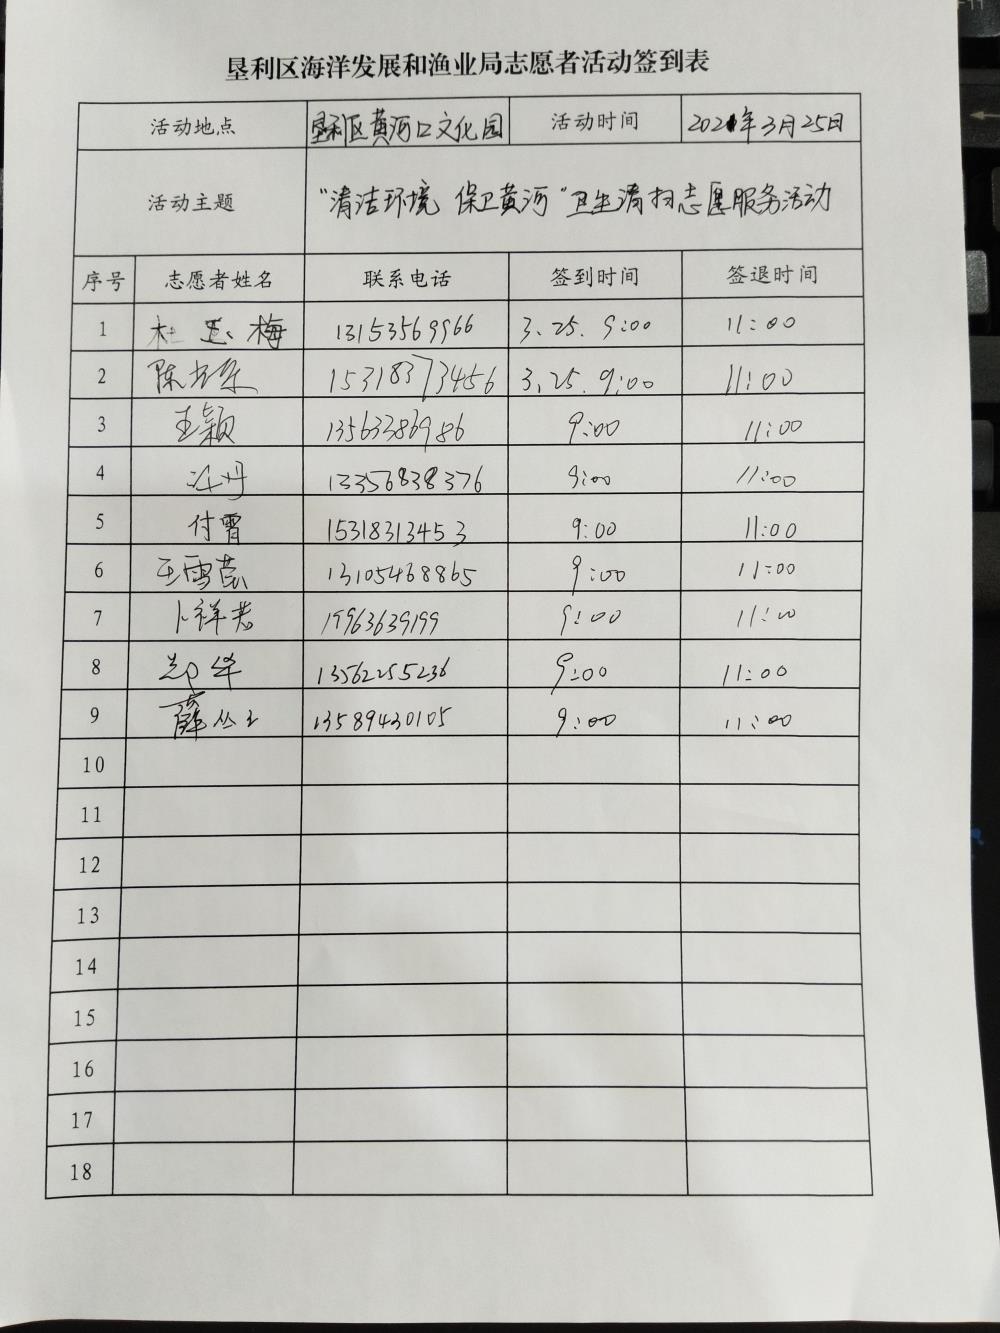 垦利区海洋发展和渔业局志愿者活动签到表
活动地点 垦利区黄河口文化园 活动时间 2021年3月25日
活动主题 "清洁环境 保卫黄河"卫生清扫志愿服务活动
序号 志愿者姓名 联系电话 签到时间 签退时间
1 杜 梅 13153569966 3.25.9:00 11:00
2 陈 15318373456 3.25.9:00 11:00
3 王颖 13563386986 9:00 11:00
4 13356838376 9:00 11:00
5 付霄 15318313453 9:00 11:00
6 王雪莹 13105468865 9:00 11:00
7 卜祥 19963639199 9:00 11:00
8 郑华 13562255236 9:00 11:00
9 薛丛玉 13589430105 9:00 11:00
10
11
12
13
14
15
16
17
18